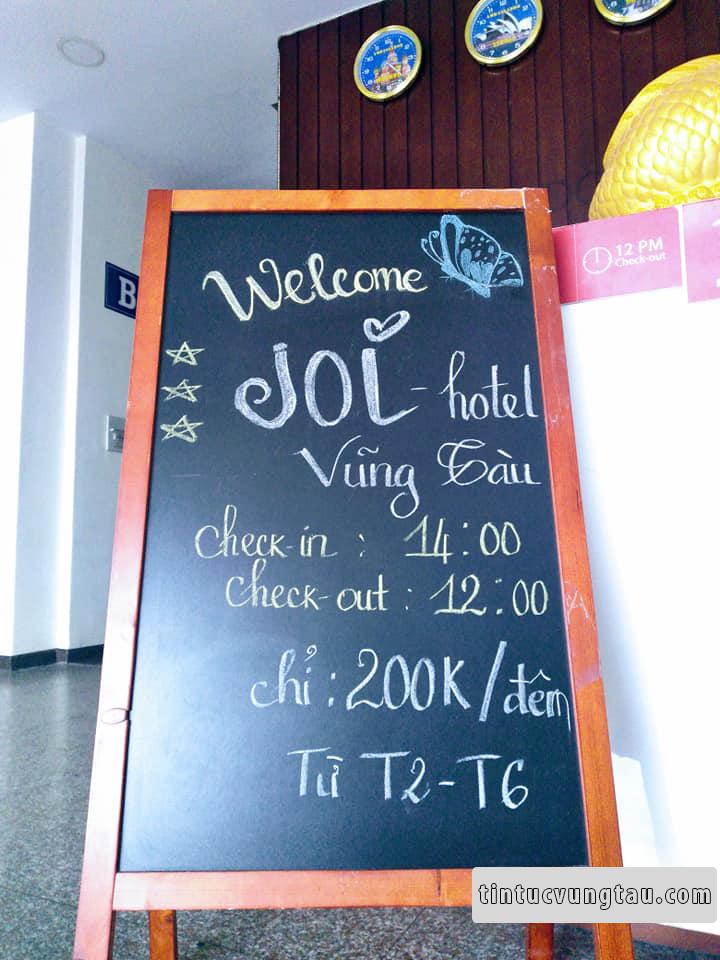 12 PM
Check-out
B
Welcome
JOi - hotel
Vũng Tàu
check-in : 14:00
check-out : 12:00
chỉ : 200K/đêm
Từ T2 - T6
tintucvungtau.com